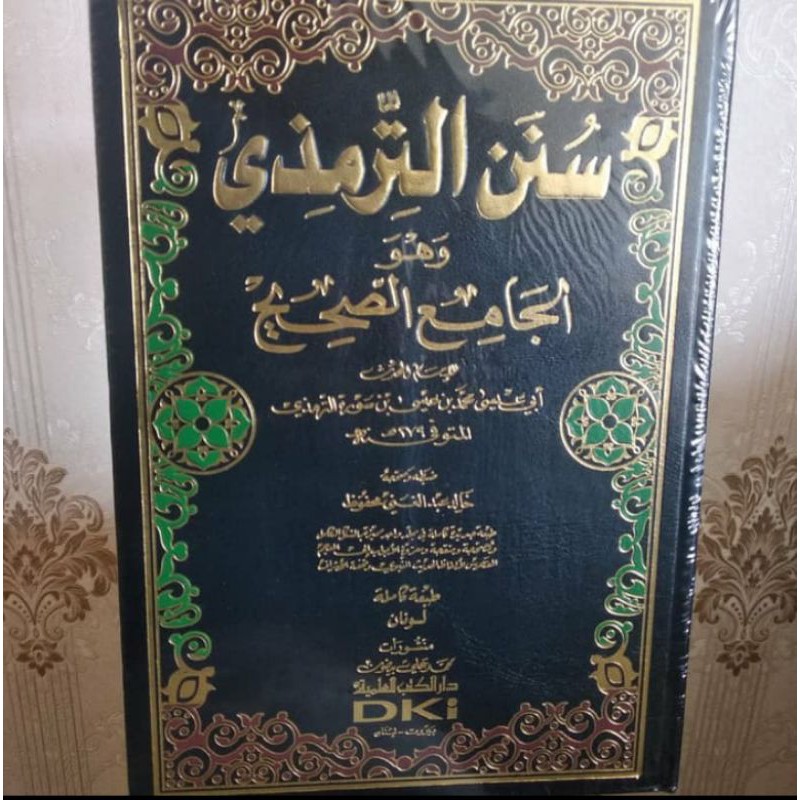 سُنَن التِّرمذي
وَهُوَ
الجَامِع الصَّحِيح
للإمام المحدث
أبي عيسى محمد بن عيسى بن سورة الترمذي
المتوفى ٢٧٩ هـ
ضبطه وصححه
خالد عبد الغني محفوظ
طبعة كاملة
لونان
منشورات
محمد علي بيضون
دار الكتب العلمية
DKi
بيروت - لبنان